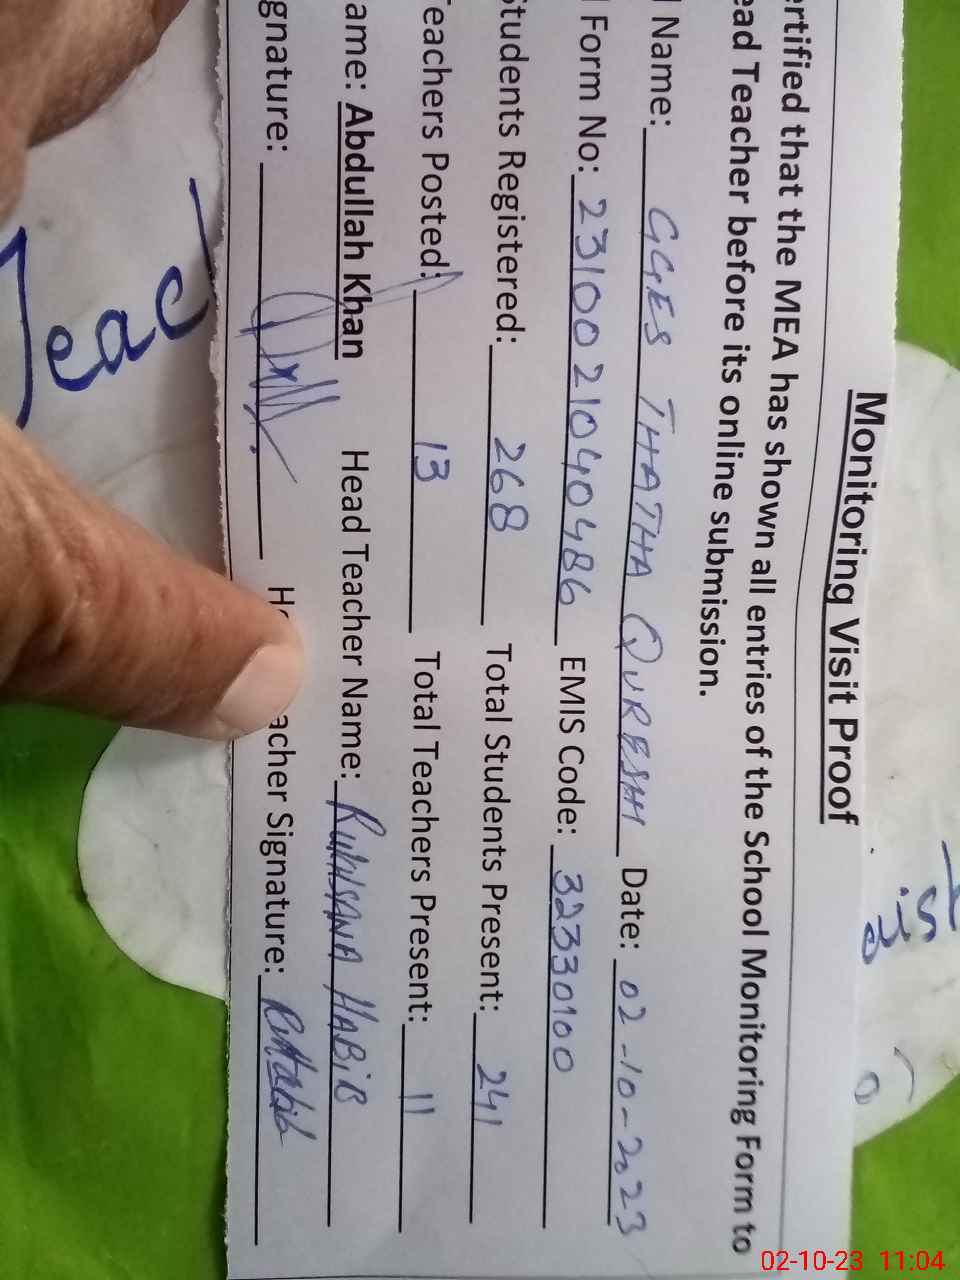 Monitoring Visit Proof
ertified that the MEA has shown all entries of the School Monitoring Form to
ead Teacher before its online submission.
l Name: GGES THATHA QURESHI Date: 02-10-2023
l Form No: 23100210404 86 EMIS Code: 32330100
Students Registered: 268 Total Students Present: 241
Teachers Posted: 13 Total Teachers Present: 11
ame: Abdullah Khan Head Teacher Name: RUKHSANA HABIB
gnature: He acher Signature:
Teac
dist
02-10-23 11:04